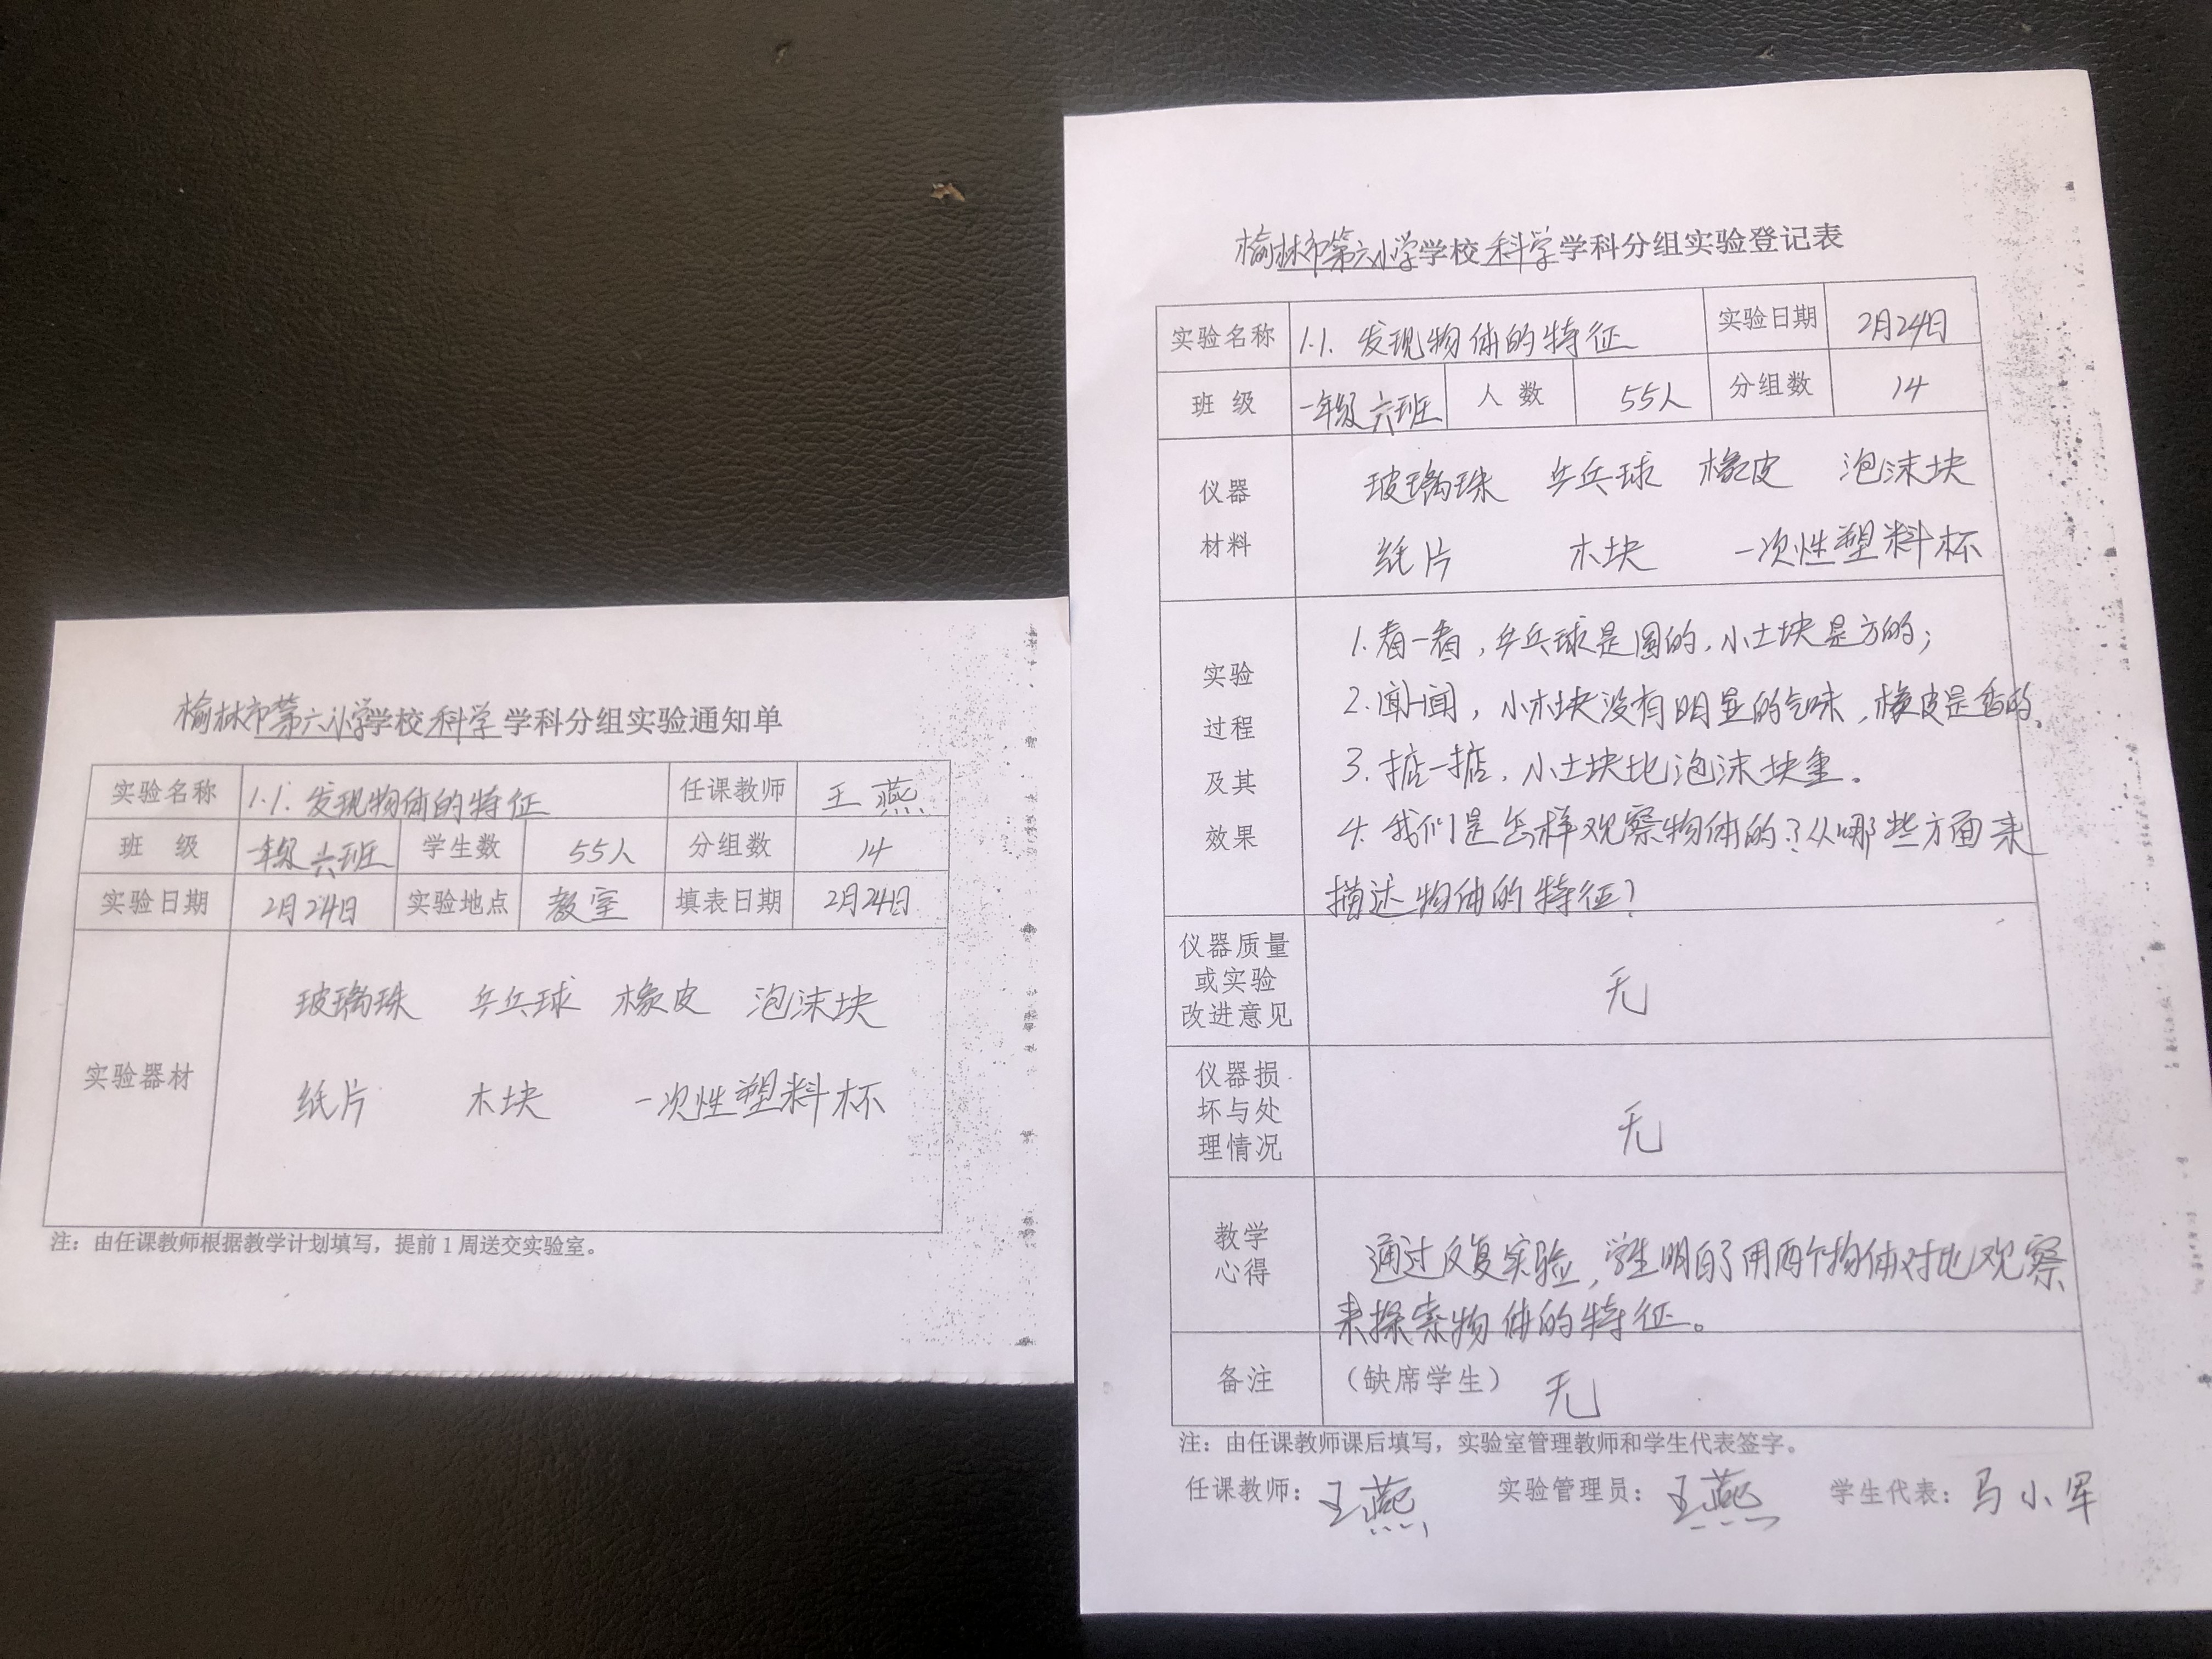 榆林市第六小学学校科学学科分组实验通知单
实验名称 1.1.发现物体的特征 任课教师 王燕
班 级 一年级六班 学生数 55人 分组数 14
实验日期 2月24日 实验地点 教室 填表日期 2月24日
实验器材
玻璃珠 乒乓球 橡皮 泡沫块
纸片 木块 一次性塑料杯
注：由任课教师根据教学计划填写，提前1周送交实验室。
榆林市第六小学学校科学学科分组实验登记表
实验名称 1.1.发现物体的特征 实验日期 2月24日
班 级 一年级六班 人 数 55人 分组数 14
仪器
材料
玻璃珠 乒乓球 橡皮 泡沫块
纸片 木块 一次性塑料杯
实验
过程
及其
效果
1.看一看，乒乓球是圆的，小土块是方的；
2.闻一闻，小木块没有明显的气味，橡皮是香的。
3.掂一掂，小土块比泡沫块重。
4.我们是怎样观察物体的？从哪些方面来
描述物体的特征？
仪器质量
或实验
改进意见
无
仪器损
坏与处
理情况
无
教学
心得
通过反复实验，学生明白了用两个物体对比观察
来探索物体的特征。
备注 （缺席学生） 无
注：由任课教师课后填写，实验室管理教师和学生代表签字。
任课教师：王燕 实验管理员：王燕 学生代表：马小军